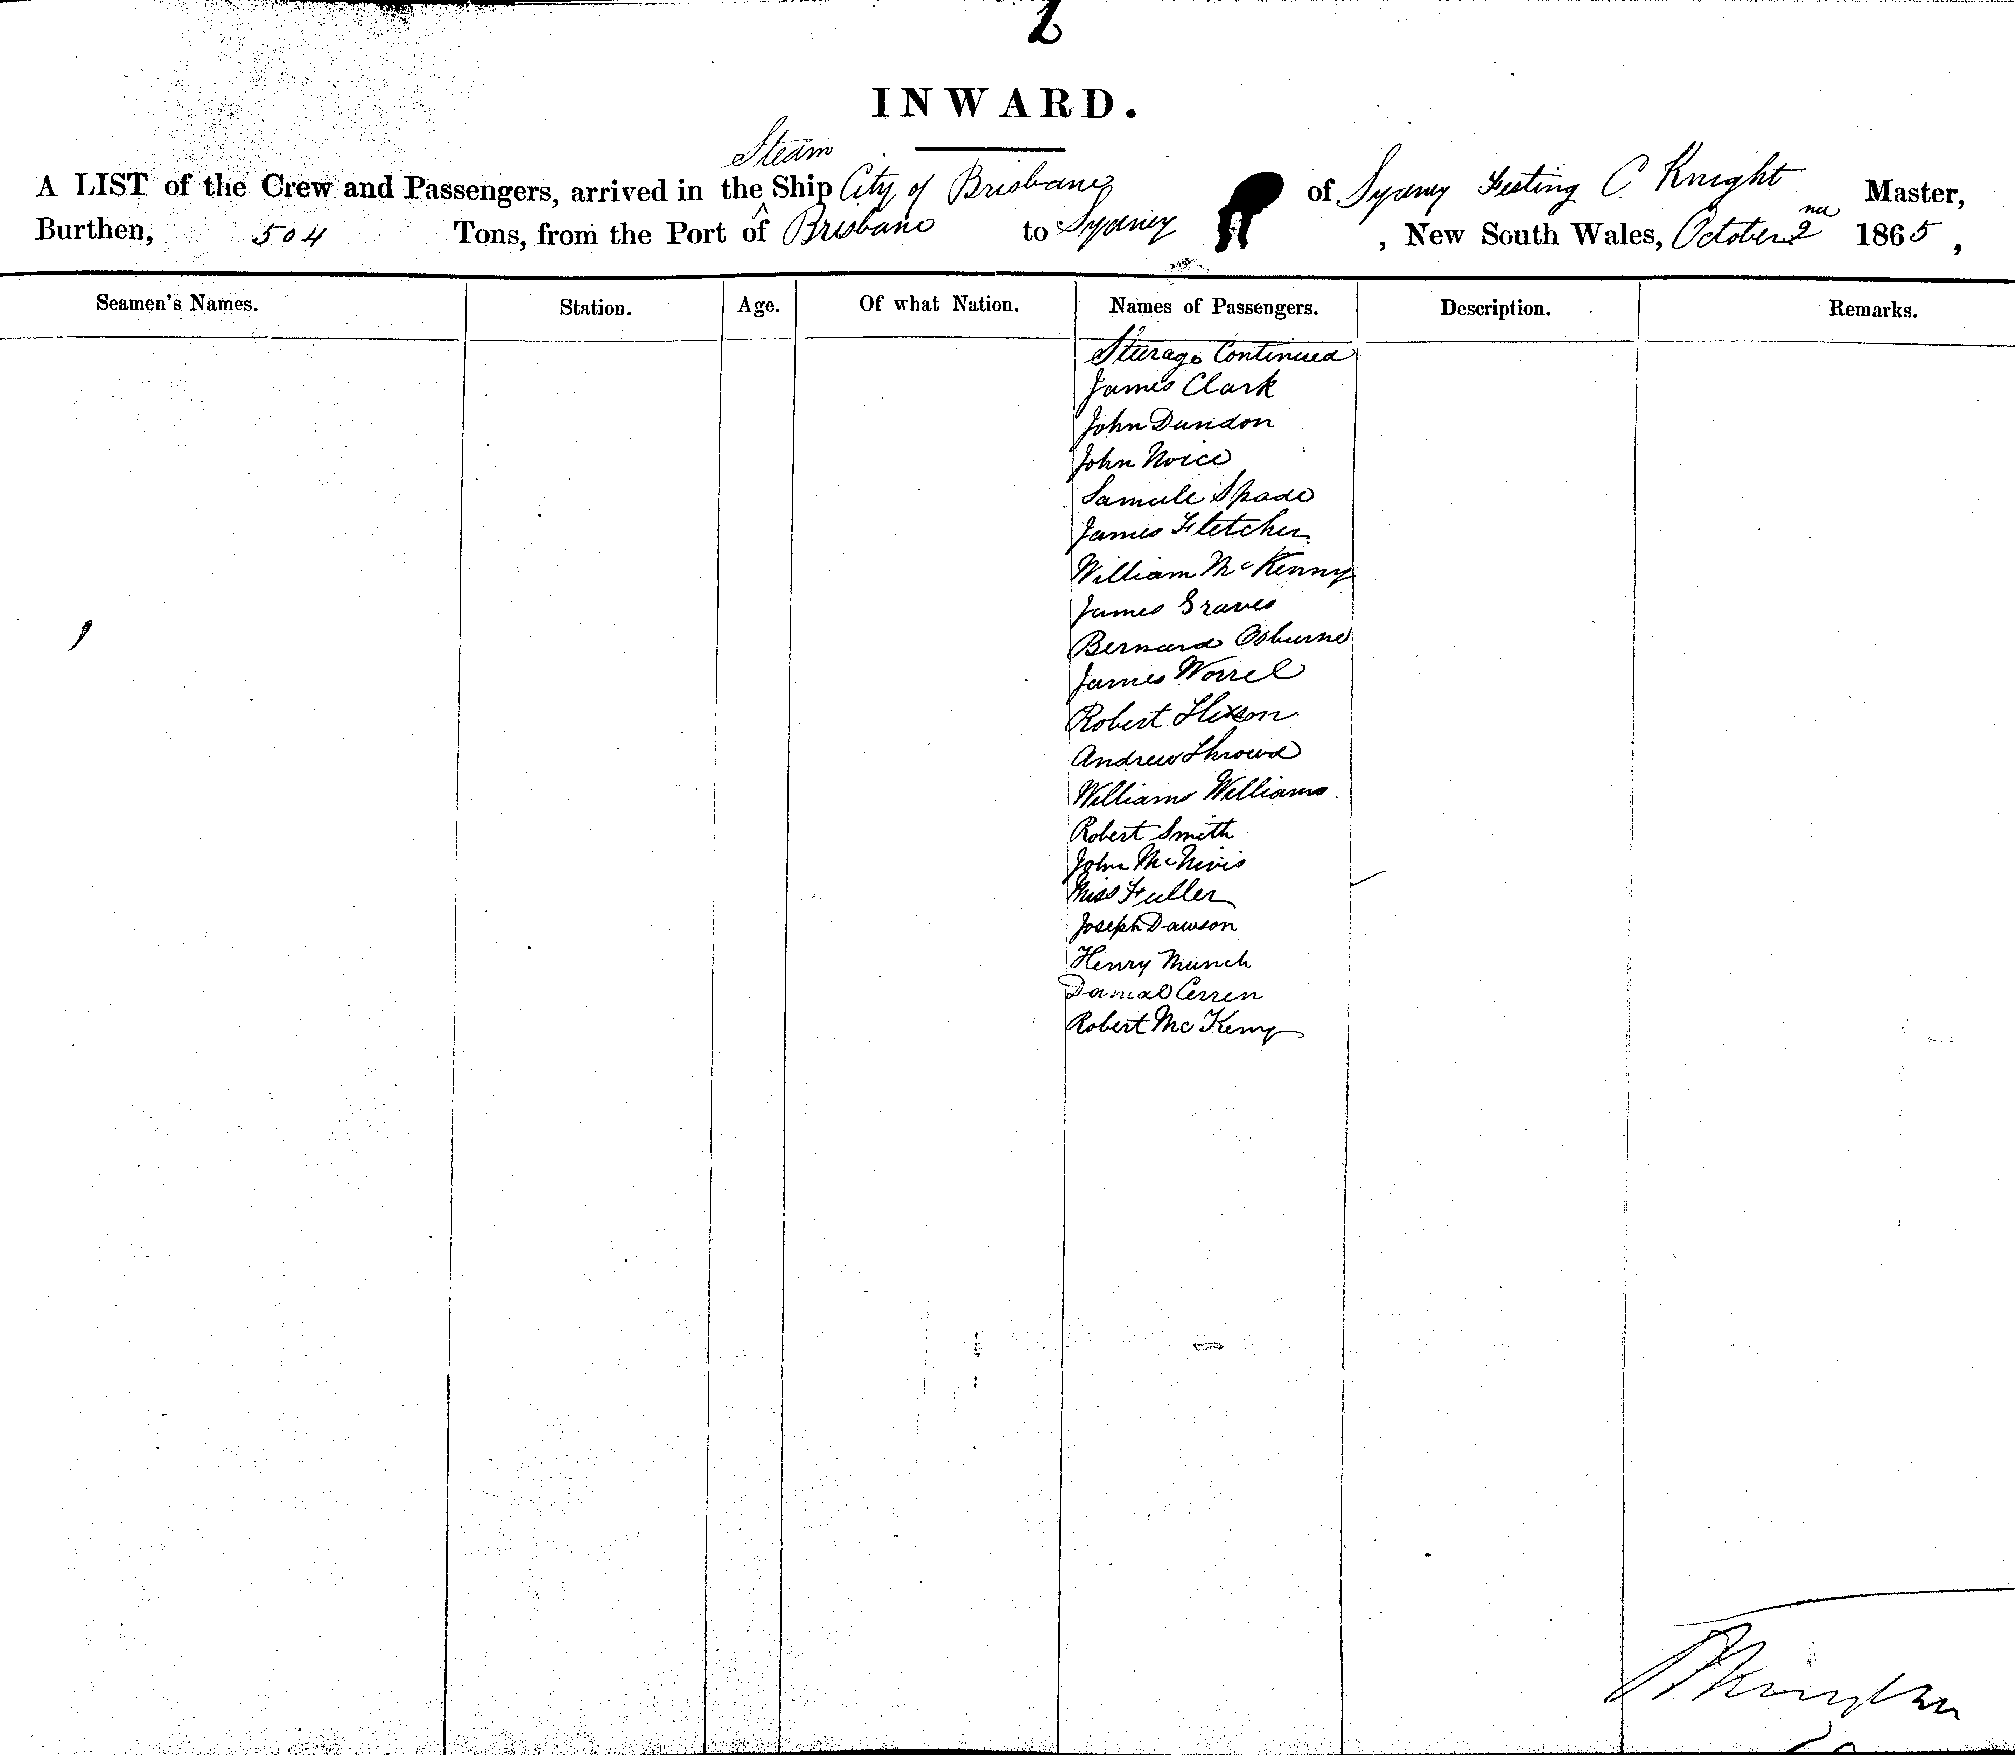 2
INWARD.
Steam
A LIST of the Crew and Passengers, arrived in the ^ Ship City of Brisbane of Sydney Festing C Knight Master,
Burthen, 504 Tons, from the Port of Brisbane to Sydney , New South Wales, October 2nd 1865,
Seamen's Names. Station. Age. Of what Nation. Names of Passengers. Description. Remarks.
Sturage Continued
James Clark
John Dundon
John Noice
Samule Spade
James Fletcher
William McKenny
James Graves
Bernard Osburne
James Worrel
Robert
Andrew Shrowd
William Williams
Robert Smith
John McNivis
Miss Fuller
Joseph Dawson
Henry Munch
Danial Cerren
Robert McKemy